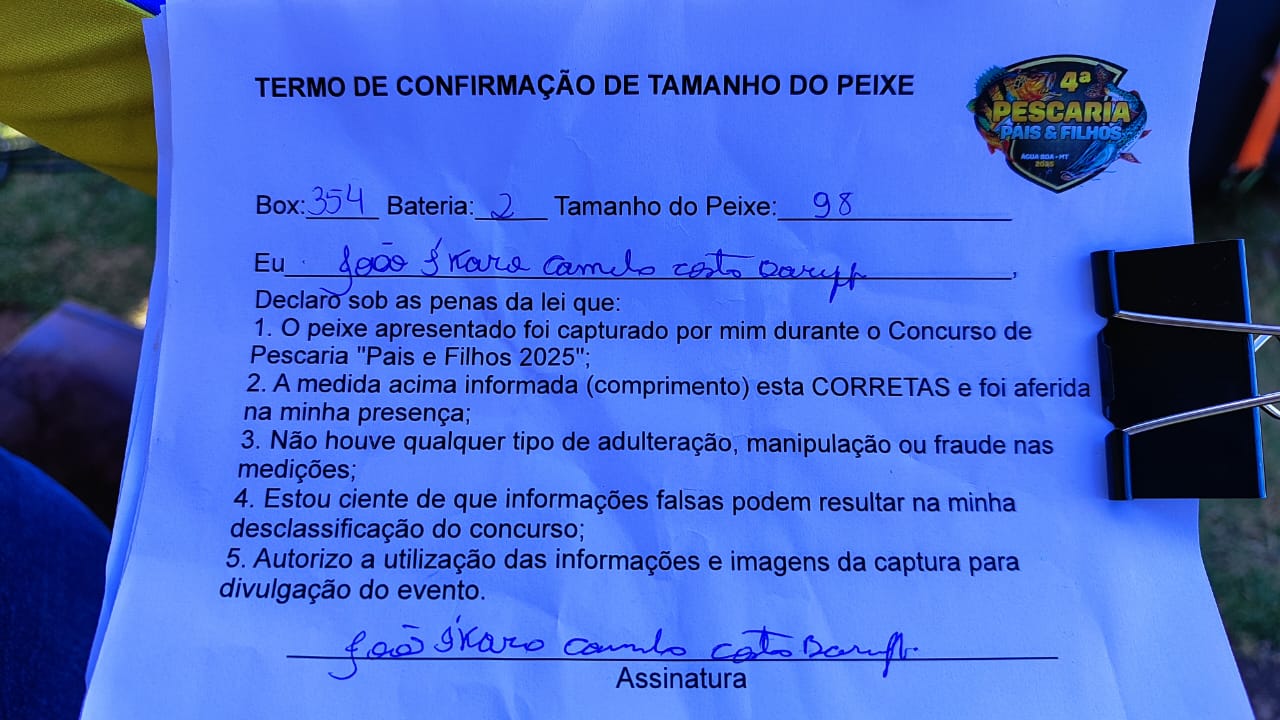 TERMO DE CONFIRMAÇÃO DE TAMANHO DO PEIXE
4ª
PESCARIA
PAIS & FILHOS
ÁGUA BOA - MT
2025
Box: 354 Bateria: 2 Tamanho do Peixe: 98
Eu João Íkaro Camelo costa,
Declaro sob as penas da lei que:
1. O peixe apresentado foi capturado por mim durante o Concurso de
Pescaria "Pais e Filhos 2025";
2. A medida acima informada (comprimento) esta CORRETAS e foi aferida
na minha presença;
3. Não houve qualquer tipo de adulteração, manipulação ou fraude nas
medições;
4. Estou ciente de que informações falsas podem resultar na minha
desclassificação do concurso;
5. Autorizo a utilização das informações e imagens da captura para
divulgação do evento.
João Íkaro Camelo costa
Assinatura